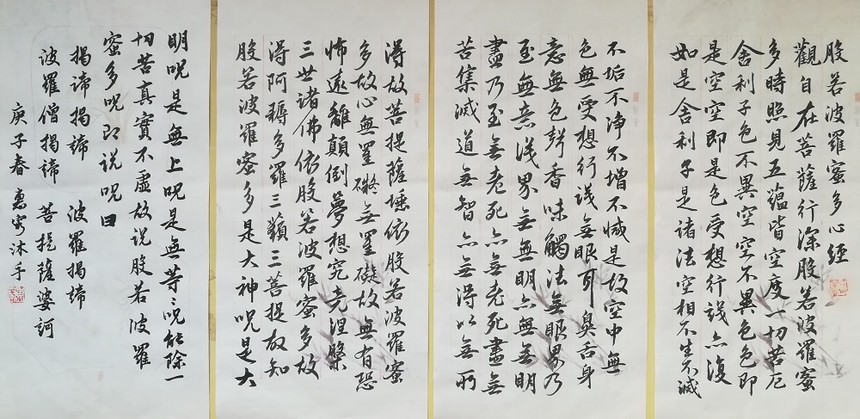 般若波羅蜜多心經
觀自在菩薩行深般若波羅蜜
多時照見五蘊皆空度一切苦厄
舍利子色不異空空不異色色即
是空空即是色受想行識亦復
如是舍利子是諸法空相不生不滅
不垢不净不增不減是故空中無
色無受想行識無眼耳鼻舌身
意無色聲香味觸法無眼界乃
至無意識界無無明亦無無明
盡乃至無老死亦無老死盡無
苦集滅道無智亦無得以無所
得故菩提薩埵依般若波羅蜜
多故心無罣礙無罣礙故無有恐
怖遠離顛倒夢想究竟涅槃
三世諸佛依般若波羅蜜多故
得阿耨多羅三藐三菩提故知
般若波羅蜜多是大神呪是大
明呪是無上呪是無等々呪能除一
切苦真實不虛故說般若波羅
蜜多呪即說呪曰
揭諦揭諦 波羅揭諦
波羅僧揭諦 菩提薩婆訶
庚子春 沐手